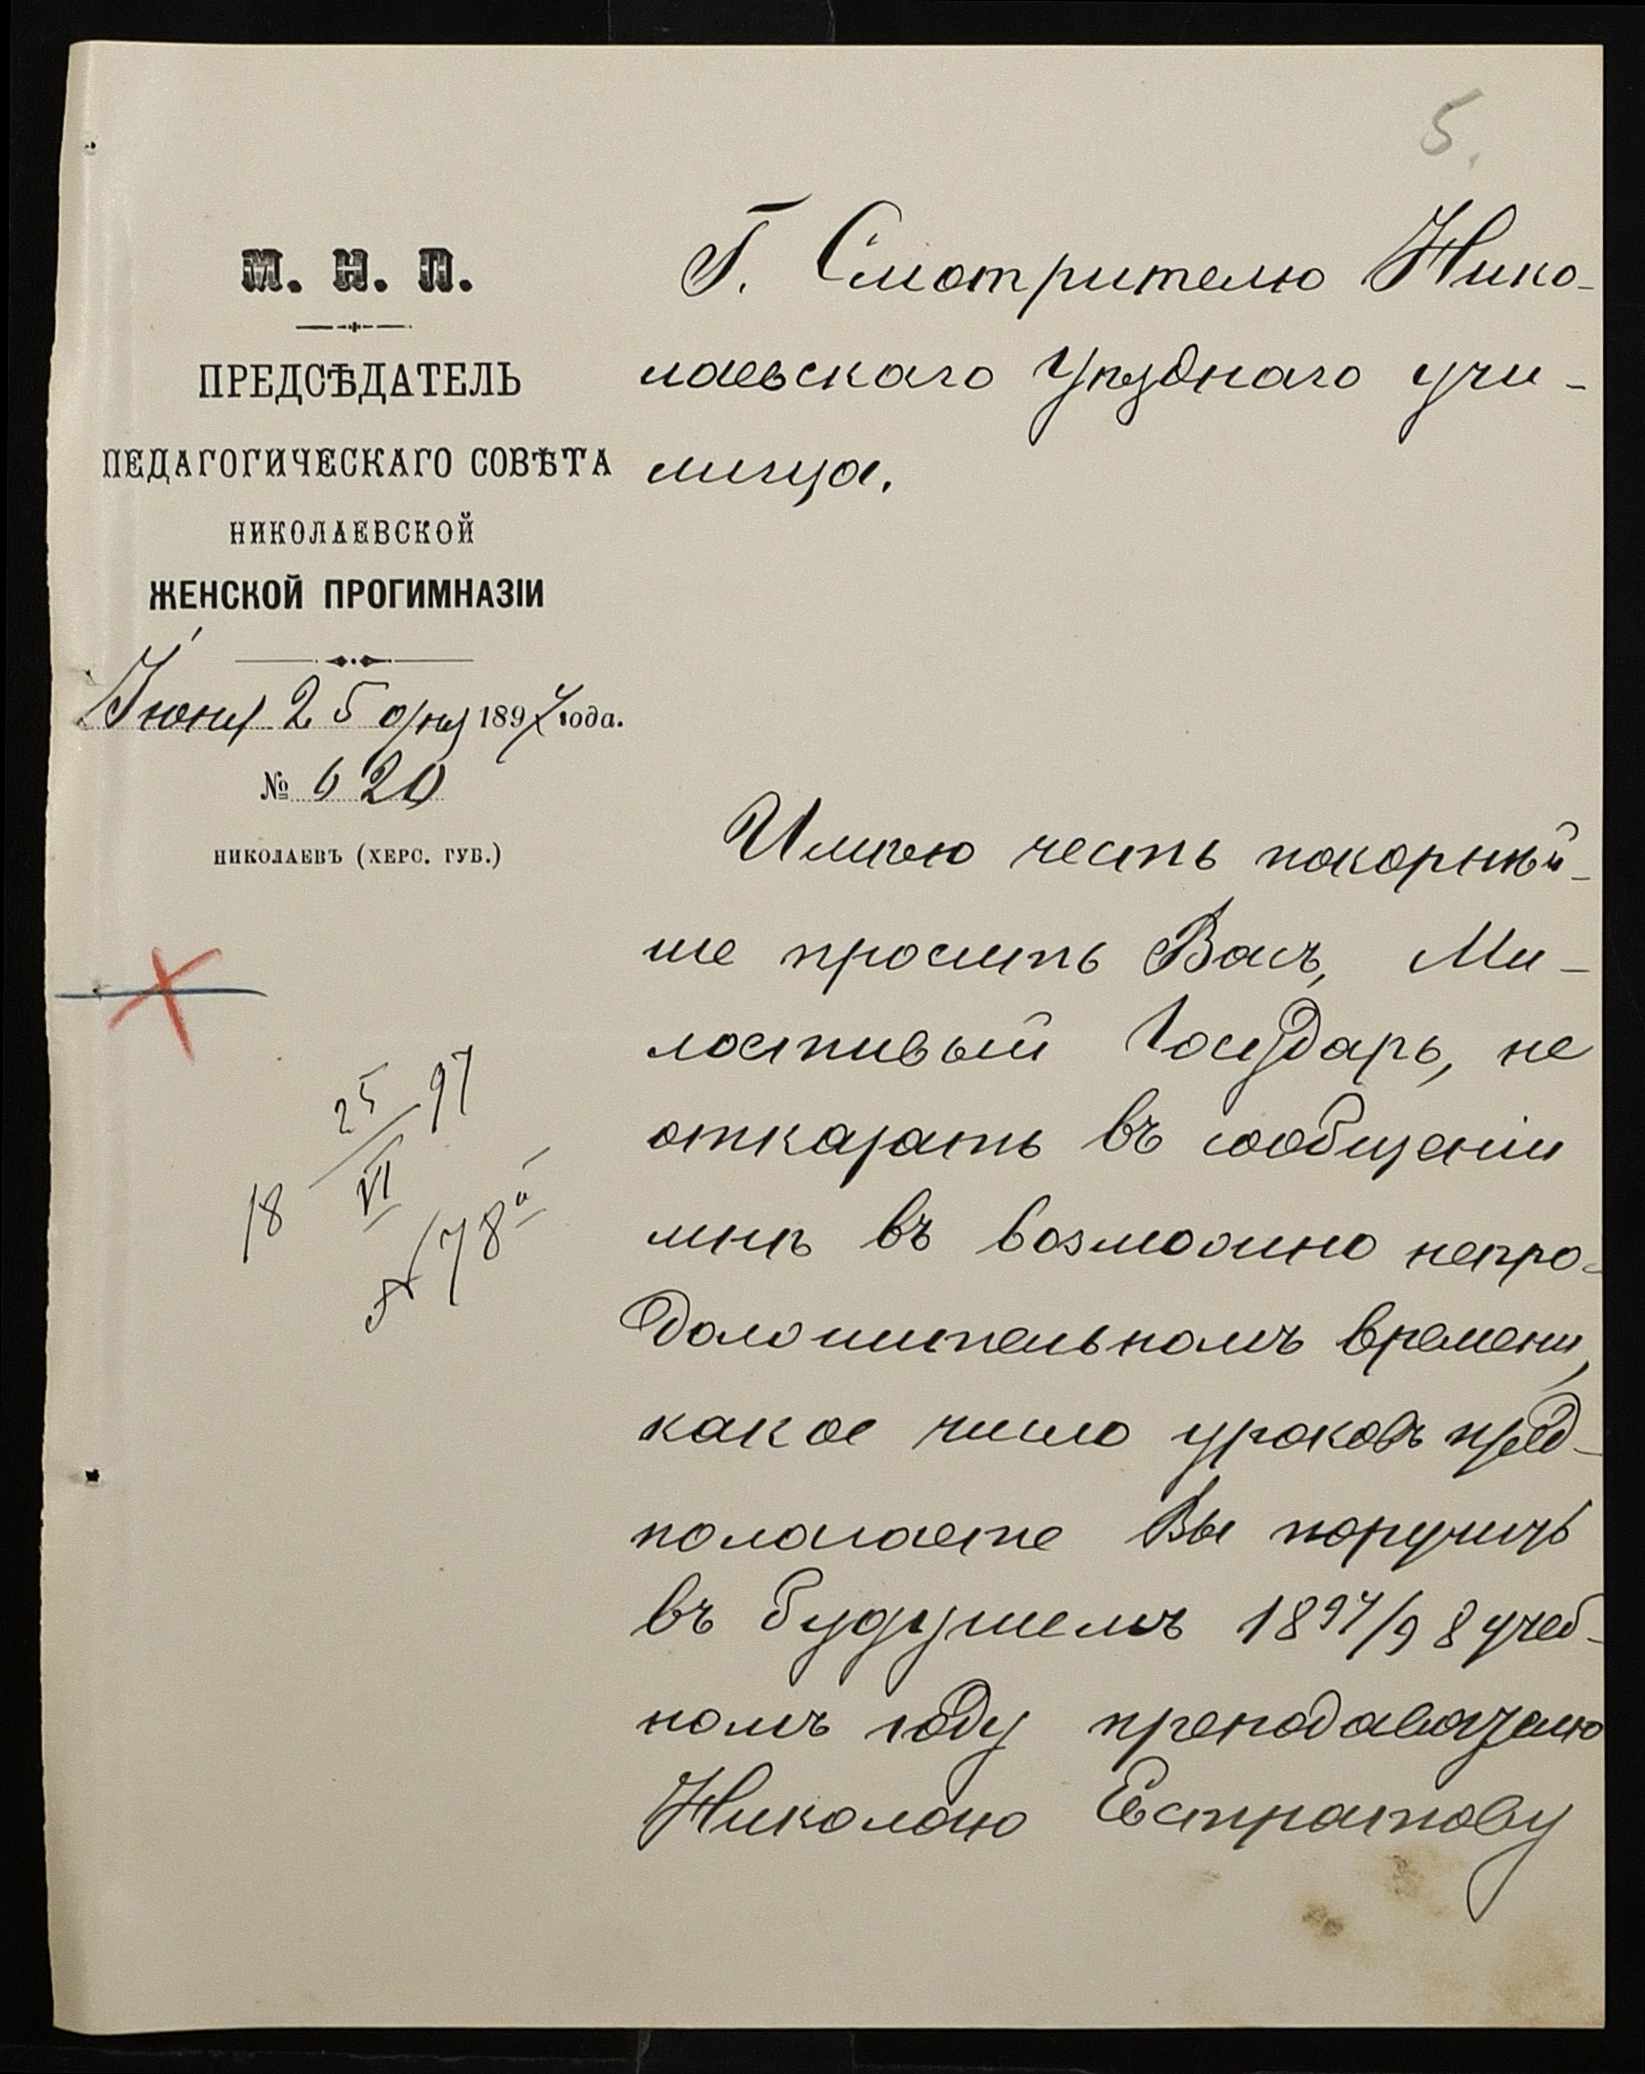 5.
М. Н. П.
ПРЕДСѢДАТЕЛЬ
ПЕДАГОГИЧЕСКАГО СОВѢТА
НИКОЛАЕВСКОЙ
ЖЕНСКОЙ ПРОГИМНАЗІИ
Іюня 25 дня 1897 года.
№ 620
НИКОЛАЕВЪ (ХЕРС. ГУБ.)
18 25/VI 97
№ 178
Г. Смотрителю Нико-
лаевскаго Уѣзднаго учи-
лища.
Имѣю честь покорнѣй-
ше просить Васъ, Ми-
лостивый Государь, не
отказать въ сообщеніи
мнѣ въ возможно непро-
должительномъ времени,
какое число уроковъ пред-
полагаете Вы поручить
въ будущемъ 1897/98 учеб-
номъ году преподавателю
Николаю Евстратову